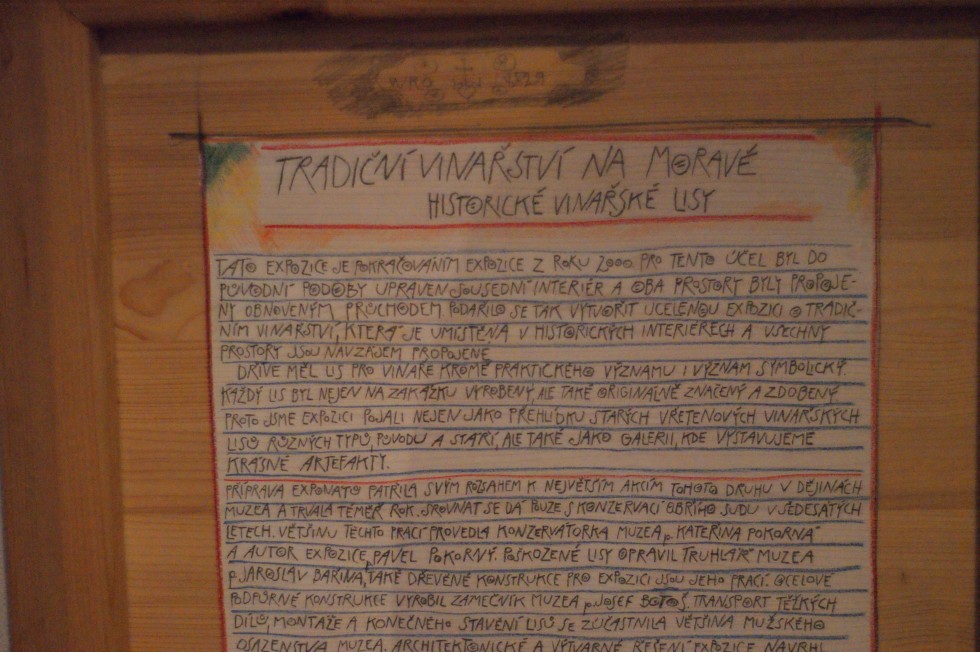 1829
TRADIČNÍ VINAŘSTVÍ NA MORAVĚ
HISTORICKÉ VINAŘSKÉ LISY
TATO EXPOZICE JE POKRAČOVANÍM EXPOZICE Z ROKU 2000. PRO TENTO ÚČEL BYL DO
PŮVODNÍ PODOBY UPRAVEN SOUSEDNÍ INTERIÉR A OBA PROSTORY BYLY PROPOJE-
NY OBNOVENÝM PRŮCHODEM. PODAŘILO SE TAK VYTVOŘIT UCELENOU EXPOZICI O TRADIČ-
NÍM VINAŘSTVÍ, KTERÁ JE UMÍSTĚNA V HISTORICKÝCH INTERIERECH A VŠECHNY
PROSTORY JSOU NAVZÁJEM PROPOJENÉ.
DŘÍVE MĚL LIS PRO VINAŘE KROMĚ PRAKTICKÉHO VÝZNAMU I VÝZNAM SYMBOLICKÝ
KAŽDÝ LIS BYL NEJEN NA ZAKÁZKU VYROBENÝ, ALE TAKÉ ORIGINALNĚ ZNAČENÝ A ZDOBENÝ.
PROTO JSME EXPOZICI POJALI NEJEN JAKO PŘEHLÍDKU STARÝCH VŘETENOVÝCH VINAŘSKÝCH
LISŮ RŮZNÝCH TYPŮ, PŮVODU A STÁŘÍ, ALE TAKÉ JAKO GALERII, KDE VYSTAVUJEME
KRÁSNÉ ARTEFAKTY.
PŘÍPRAVA EXPONATŮ PATŘILA SVÝM ROZSAHEM K NEJVĚTŠÍM AKCÍM TOHOTO DRUHU V DĚJINÁCH
MUZEA A TRVALA TÉMĚŘ ROK. SROVNAT SE DÁ POUZE S KONZERVACÍ OBŘÍHO SUDU V ŠEDESÁTÝCH
LETECH. VĚTŠINU TĚCHTO PRACÍ PROVEDLA KONZERVÁTORKA MUZEA p. KATEŘINA POKORNÁ
A AUTOR EXPOZICE, PAVEL POKORNÝ. POŠKOZENÉ LISY OPRAVIL TRUHLÁŘ MUZEA
p. JAROSLAV BAŘINA, TAKÉ DŘEVĚNÉ KONSTRUKCE PRO EXPOZICI JSOU JEHO PRACÍ. OCELOVÉ
PODPŮRNÉ KONSTRUKCE VYROBIL ZÁMEČNÍK MUZEA p. JOSEF BOTOŠ. TRANSPORT TĚŽKÝCH
DÍLŮ, MONTÁŽE A KONEČNÉHO STAVĚNÍ LISŮ SE ZÚČASTNILA VĚTŠINA MUŽSKÉHO
OSAZENSTVA MUZEA. ARCHITEKTONICKÉ A VÝTVARNÉ ŘEŠENÍ EXPOZICE NAVRHL